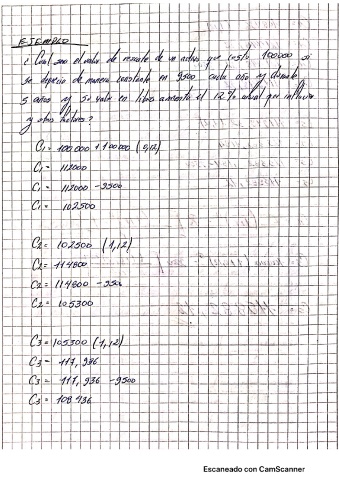 EJEMPLO
¿Cual sera el valor de rescate de un activo que costo 100000 si
se deprecia de manera constante en 9500 cada año y durante
5 años y su valor en libros aumenta el 12% anual por inflacion
y otros factores?
C1 = 100 000 + 100 000 (0,12)
C1 = 112000
C1 = 112000 - 9500
C1 = 102500
C2 = 102500 (1,12)
C2 = 114800
C2 = 114800 - 9500
C2 = 105300
C3 = 105300 (1,12)
C3 = 117,936
C3 = 117,936 - 9500
C3 = 108 436
Escaneado con CamScanner